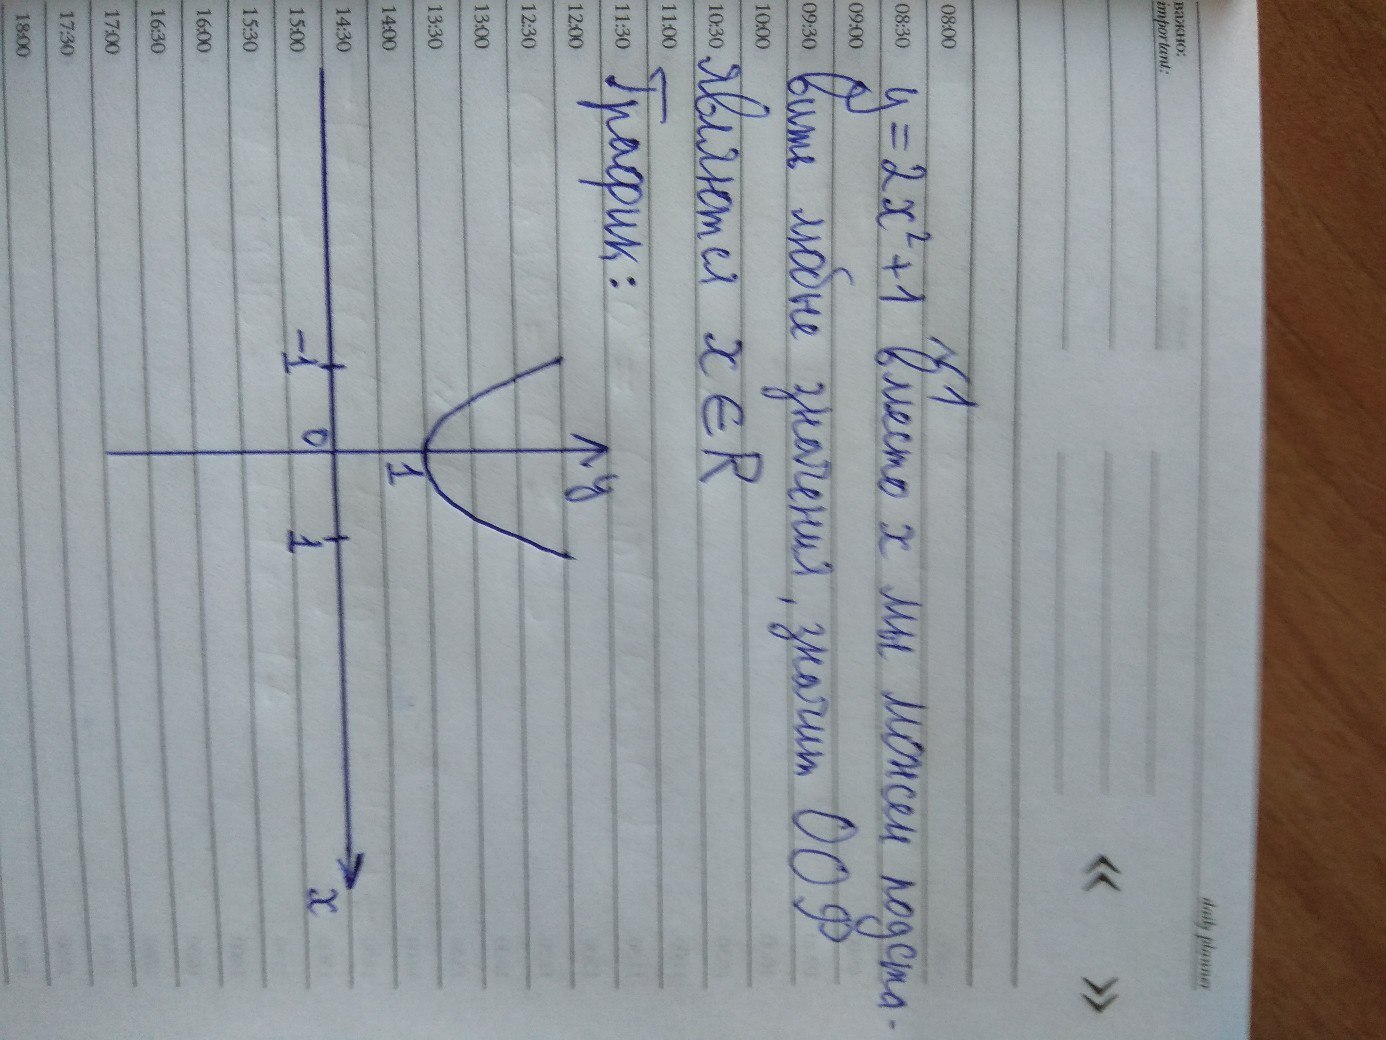 важно:
important:
daily planner
№1
08:00
08:30 y=2x²+1 вместо x мы можем подста-
09:00
09:30 вить любые значения, значит ООФ
10:00
10:30 являются x∈R
11:00
11:30 График:
12:00
y
12:30
13:00
13:30
1
14:00
14:30
x
15:00
-1 0 1
15:30
16:00
16:30
17:00
17:30
18:00